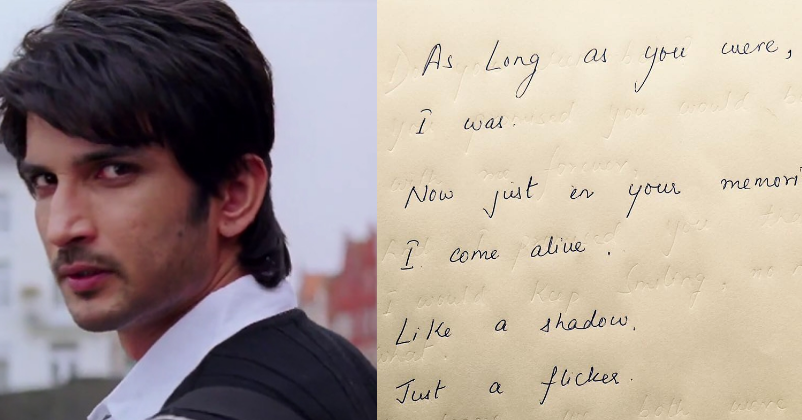 As Long as you were,
I was.
Now just in your memori
I come alive.
Like a shadow.
Just a flicker.